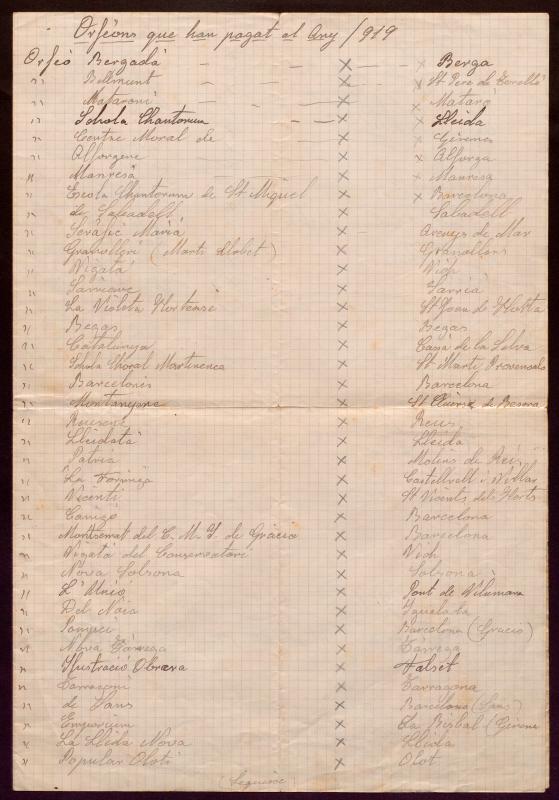 Orfeóns que han pagat el Any 1919
Orfeó Bergadà — — × — × Berga
" Bellmunt — — × — × St Pere de Torelló
" Mataroní — — × × Mataró
" Schola Chantorum — × Lleida
" Centre Moral de × × Girona
" Alforgenc × × Alforga
" Manresà × × Manresa
" Escola Chantorum de St Miquel × × Barcelona
" de Sabadell × Sabadell
" Seràfic Marià × Arenys de Mar
" Granollerí (Martí Llobet) × Granollers
" Vigatà × Vich
" Sarrienc × Sarrià
" La Violeta Hortense × St Joan de Horta
" Begas × Begas
" Catalunya × Cassà de la Selva
" Schola Choral Martinenca × St Martí Provensals
" Barcelonès × Barcelona
" Montanyenc × St Quirze de Besora
" Reusenc × Reus
" Lleidatà × Lleida
" Patria × Molins de Reis
" La Formiga × Castellvell i Vilar
" Vicentí × St Vicents dels Horts
" Canigó × Barcelona
" Montserrat del C. M. I. de Gracia × Barcelona
" Vigatà del Conservatori × Vich
" Nova Solsona × Solsona
" L'Unió × Pont de Vilumara
" Del Noia × Igualada
" Pompeí × Barcelona (Gracia)
" Nova Tàrrega × Tàrrega
" Ilustració Obrera × Falset
" Tarragoní × Tarragona
" de Sans × Barcelona (Sans)
" Emporium × La Bisbal (Girona
" La Lleida Nova × Lleida
" Popular Olotí × Olot
(Segueixe)